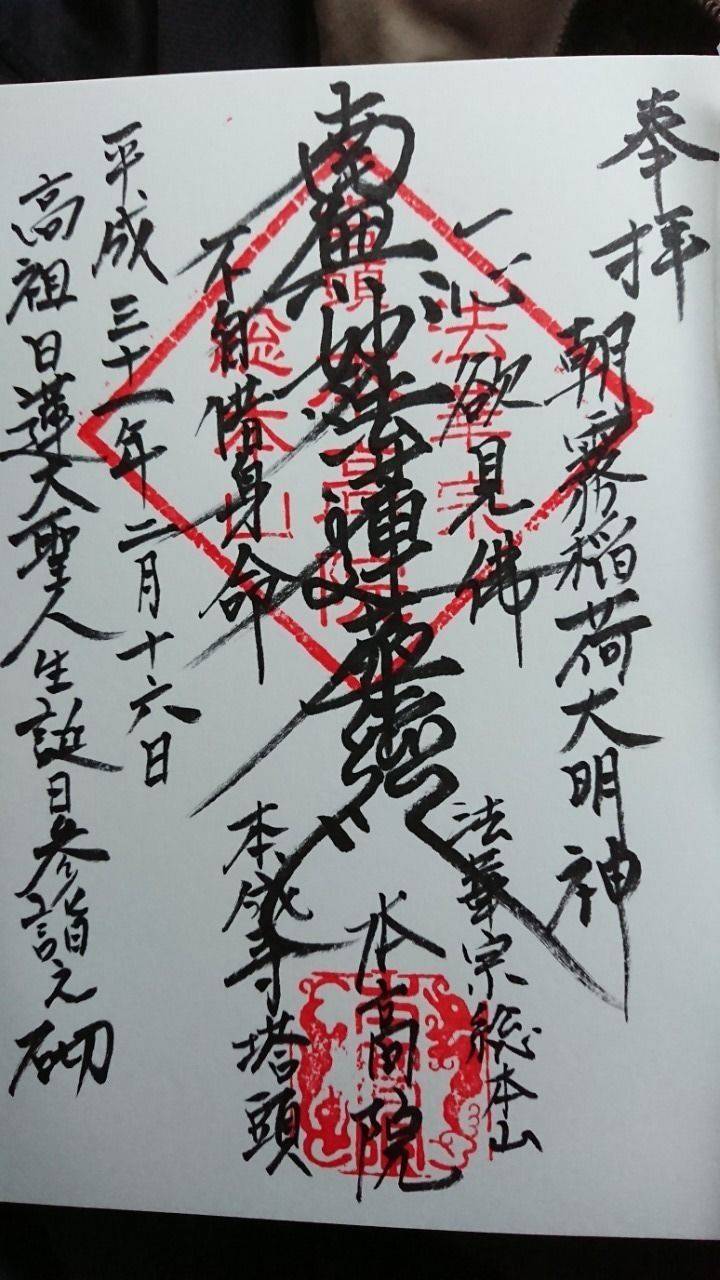 奉拝
朝霧稲荷大明神
一心欲見佛
南無妙法蓮華経
不自惜身命
平成三十一年二月十六日
高祖日蓮大聖人生誕日参詣之砌
法華宗総本山
本成寺塔頭
本高院
法華宗
塔頭本高院
総本山